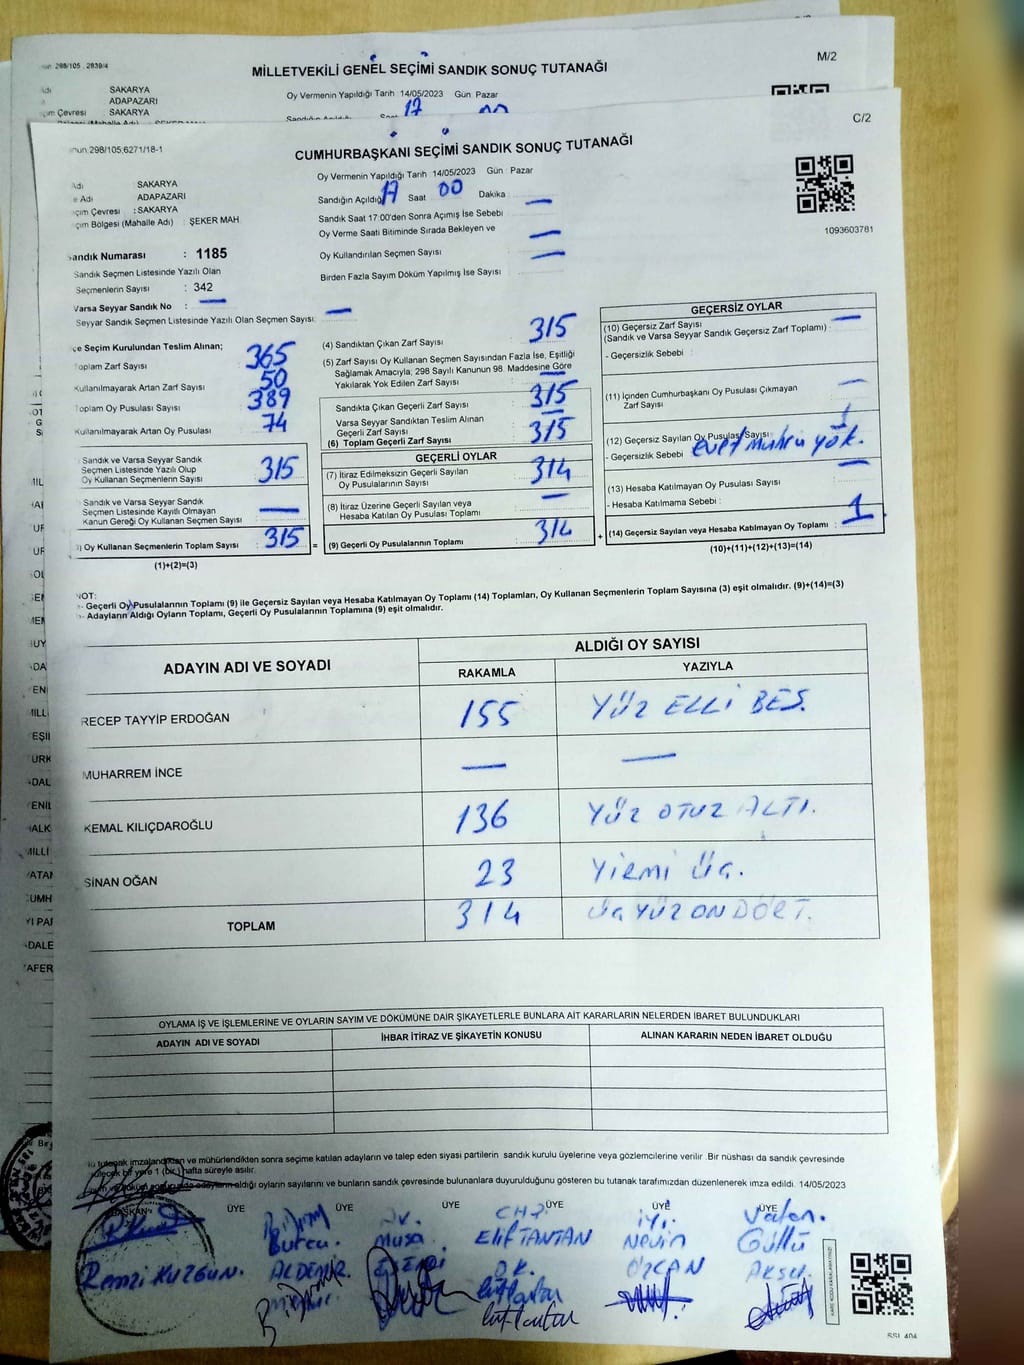 298/105 . 2839/4
MİLLETVEKİLİ GENEL SEÇİMİ SANDIK SONUÇ TUTANAĞI
M/2
SAKARYA
ADAPAZARI
SAKARYA
Oy Vermenin Yapıldığı Tarih 14/05/2023 Gün Pazar
17 00
298/105;6271/18-1
CUMHURBAŞKANI SEÇİMİ SANDIK SONUÇ TUTANAĞI
C/2
Adı SAKARYA
e Adı ADAPAZARI
çim Çevresi : SAKARYA
çim Bölgesi (Mahalle Adı) : ŞEKER MAH
Oy Vermenin Yapıldığı Tarih 14/05/2023 Gün : Pazar
Sandığın Açıldığı 17 Saat 00 Dakika —
Sandık Saat 17:00'den Sonra Açımış İse Sebebi
Oy Verme Saati Bitiminde Sırada Bekleyen ve —
Oy Kullandırılan Seçmen Sayısı —
Birden Fazla Sayım Döküm Yapılmış İse Sayısı
1093603781
Sandık Numarası : 1185
Sandık Seçmen Listesinde Yazılı Olan
Seçmenlerin Sayısı : 342
Varsa Seyyar Sandık No : —
Seyyar Sandık Seçmen Listesinde Yazılı Olan Seçmen Sayısı: —
çe Seçim Kurulundan Teslim Alınan;
Toplam Zarf Sayısı 365
Kullanılmayarak Artan Zarf Sayısı 50
Toplam Oy Pusulası Sayısı 389
Kullanılmayarak Artan Oy Pusulası 74
Sandık ve Varsa Seyyar Sandık
Seçmen Listesinde Yazılı Olup
Oy Kullanan Seçmenlerin Sayısı : 315
Sandık ve Varsa Seyyar Sandık
Seçmen Listesinde Kayıtlı Olmayan
Kanun Gereği Oy Kullanan Seçmen Sayısı : —
) Oy Kullanan Seçmenlerin Toplam Sayısı : 315 =
(1)+(2)=(3)
(4) Sandıktan Çıkan Zarf Sayısı 315
(5) Zarf Sayısı Oy Kullanan Seçmen Sayısından Fazla İse, Eşitliği
Sağlamak Amacıyla, 298 Sayılı Kanunun 98. Maddesine Göre
Yakılarak Yok Edilen Zarf Sayısı —
Sandıkta Çıkan Geçerli Zarf Sayısı 315
Varsa Seyyar Sandıktan Teslim Alınan
Geçerli Zarf Sayısı —
(6) Toplam Geçerli Zarf Sayısı 315
GEÇERLİ OYLAR
(7) İtiraz Edilmeksizin Geçerli Sayılan
Oy Pusulalarının Sayısı : 314
(8) İtiraz Üzerine Geçerli Sayılan veya
Hesaba Katılan Oy Pusulası Toplamı —
(9) Geçerli Oy Pusulalarının Toplamı : 314 +
GEÇERSİZ OYLAR
(10) Geçersiz Zarf Sayısı —
(Sandık ve Varsa Seyyar Sandık Geçersiz Zarf Toplamı) :
- Geçersizlik Sebebi :
(11) İçinden Cumhurbaşkanı Oy Pusulası Çıkmayan
Zarf Sayısı —
(12) Geçersiz Sayılan Oy Pusulası Sayısı 1
- Geçersizlik Sebebi evet mührü yok.
(13) Hesaba Katılmayan Oy Pusulası Sayısı —
- Hesaba Katılmama Sebebi :
(14) Geçersiz Sayılan veya Hesaba Katılmayan Oy Toplamı : 1
(10)+(11)+(12)+(13)=(14)
NOT:
- Geçerli Oy Pusulalarının Toplamı (9) ile Geçersiz Sayılan veya Hesaba Katılmayan Oy Toplamı (14) Toplamları, Oy Kullanan Seçmenlerin Toplam Sayısına (3) eşit olmalıdır. (9)+(14)=(3)
- Adayların Aldığı Oyların Toplamı, Geçerli Oy Pusulalarının Toplamına (9) eşit olmalıdır.
ADAYIN ADI VE SOYADI
ALDIĞI OY SAYISI
RAKAMLA YAZIYLA
RECEP TAYYİP ERDOĞAN 155 YÜZ ELLİ BEŞ.
MUHARREM İNCE — —
KEMAL KILIÇDAROĞLU 136 YÜZ OTUZ ALTI.
SİNAN OĞAN 23 YİRMİ ÜÇ.
TOPLAM 314 ÜÇ YÜZ ON DÖRT.
OYLAMA İŞ VE İŞLEMLERİNE VE OYLARIN SAYIM VE DÖKÜMÜNE DAİR ŞİKAYETLERLE BUNLARA AİT KARARLARIN NELERDEN İBARET BULUNDUKLARI
ADAYIN ADI VE SOYADI İHBAR İTİRAZ VE ŞİKAYETİN KONUSU ALINAN KARARIN NEDEN İBARET OLDUĞU
tutanak imzalandıktan ve mühürlendikten sonra seçime katılan adayların ve talep eden siyasi partilerin sandık kurulu üyelerine veya gözlemcilerine verilir .Bir nüshası da sandık çevresinde
bir yere 1 (bir) hafta süreyle asılır.
adayların aldığı oyların sayılarını ve bunların sandık çevresinde bulunanlara duyurulduğunu gösteren bu tutanak tarafımızdan düzenlenerek imza edildi. 14/05/2023
BAŞKAN ÜYE ÜYE ÜYE ÜYE ÜYE
CHP İYİ. Vatan.
Burcu. Musa. ELİF TANTAN Nevin Güllü
Remzi KUZGUN. ALDEMİR ÖZCAN AKSU.
SSI 404